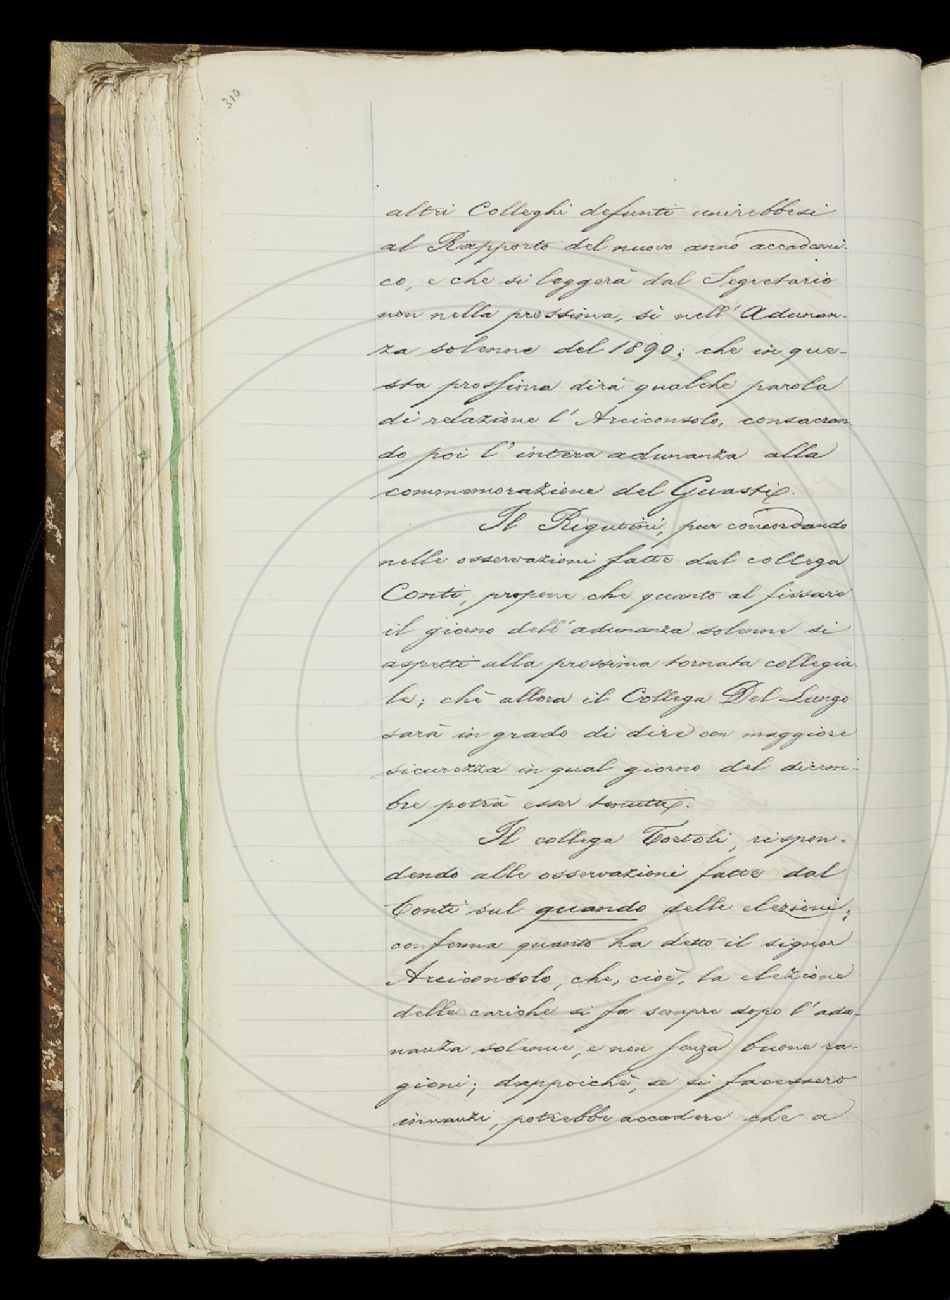 310
altri Colleghi defunti unirebbesi
al Rapporto del nuovo anno accademi-
co, e che si leggerà dal Segretario
non nella prossima, sì nell'Adunan-
za solenne del 1890; che in que-
sta prossima dirà qualche parola
di relazione l'Arciconsolo, consacran
do poi l'intera adunanza alla
commemorazione del Guasti.
Il Rigutini, pur concordando
nelle osservazioni fatte dal collega
Conti, propone che quanto al fissare
il giorno dell'adunanza solenne si
aspetti alla prossima tornata collegia-
le; chè allora il Collega Del Lungo
sarà in grado di dire con maggiore
sicurezza in qual giorno del dicem-
bre potrà esser tenuta.
Il collega Tortoli, rispon-
dendo alle osservazioni fatte dal
Conti sul quando delle elezioni,
conferma quanto ha detto il signor
Arciconsolo, che, cioè, la elezione
delle cariche si fa sempre dopo l'adu-
nanza solenne, e non senza buone ra-
gioni; dappoichè, se si facessero
innanzi, potrebbe accadere che a